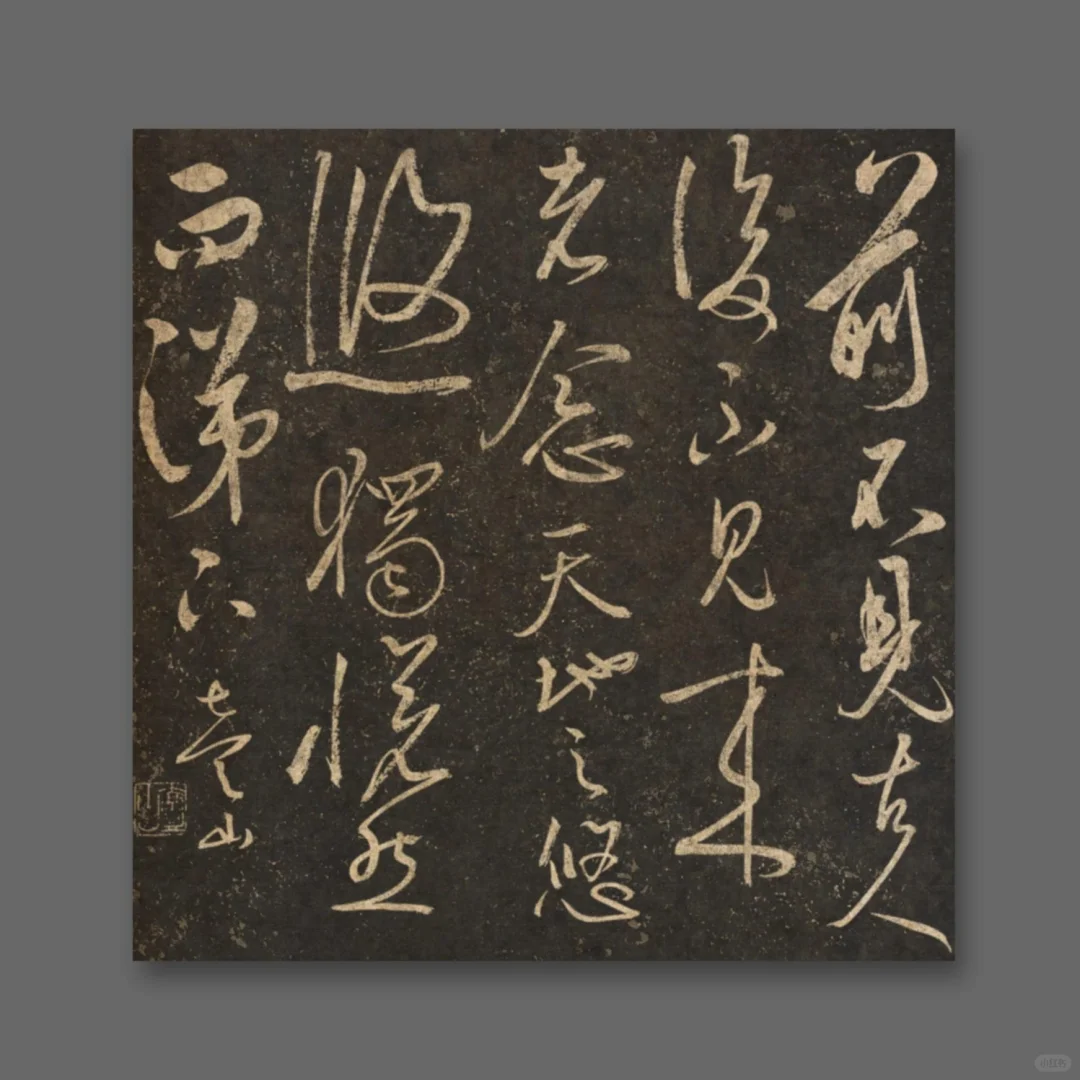 前不見古人
後不見来
者念天地之悠
悠獨愴然
而涕下
山
小红书